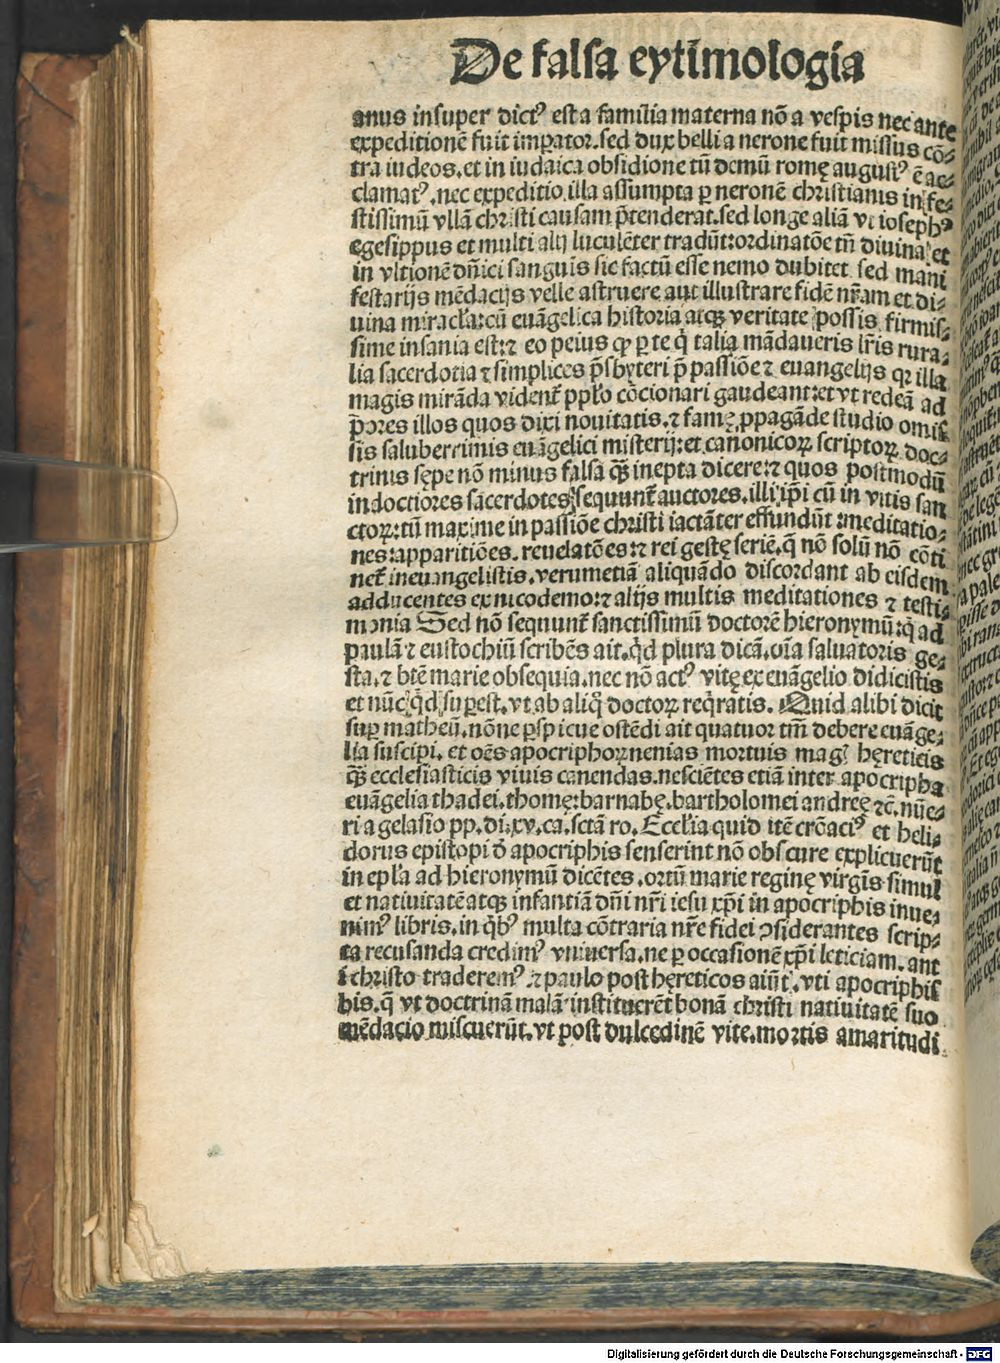 De falsa eytimologia
anus insuper dictꝰ est a familia materna nō a vespis nec ante
expeditionē fuit imꝑator. sed dux belli a nerone fuit missus cō⸗
tra iudeos. et in iudaica obsidione tū demū romę augustꝰ ē ac⸗
clamatꝰ. nec expeditio illa assumpta ꝑ neronē christianis infe⸗
stissimū vllā christi causam p̄tenderat. sed longe aliā vt iosephꝰ
egesippus et multi alij luculēter tradūt: ordinatōe tn̄ diuina et
in vltionē dn̄ici sanguis sic factū esse nemo dubitet. sed mani
festarijs mēdacijs velle astruere aut illustrare fidē nr̄am et di⸗
uina miracl̓a: cū euāgelica historia atqꝫ veritate possis firmis⸗
sime insania est: ⁊ eo peius qꝙ ꝑ te q̄ talia mādaueris lr̄is rura⸗
lia sacerdotia ⁊ simplices p̄sbyteri p̄ passiōe ⁊ euangelijs qꝛ illa
magis mirāda vident᷑ ppl̓o cōcionari gaudeant: et vt redeā ad
p̄ores illos quos dixi nouitatis. ⁊ famę ꝓpagāde studio omis
sis saluberrimis euāgelici misterij: et canonicoꝝ scriptoꝝ doc⸗
trinis sępe nō minus falsa qꝫ̄ inepta dicere: ⁊ quos postmodū
indoctiores sacerdotes sequunt᷑ auctores. illi ip̄i cū in vitis san
ctoꝝ: tū maxime in passiōe christi iactāter effundūt: meditatio⸗
nes: apparitiōes. reuelatōes: ⁊ rei gestę seriē. q̄ nō solū nō cōti
net᷑ in euangelistis. verumetiā aliquādo discordant ab eisdem
adducentes ex nicodemo: ⁊ alijs multis meditationes ⁊ testi⸗
monia Sed nō sequunt᷑ sanctissimū doctorē hieronymū: q̄ ad
paulā ⁊ eustochiū scribēs ait. qd̄ plura dicā. oīa saluatoris ge⸗
sta. ⁊ btē̄ marie obsequia. nec nō actꝰ vitę ex euāgelio didicistis
et nūc qd̄ suꝑest. vt ab aliq̄ doctoꝝ reqratis. Quid alibi dicit
suꝑ matheū. nōne ꝑspicue ostēdi ait quatuor tm̄ debere euāge⸗
lia suscipi. et oēs apocriphoꝝ nenias mortuis magꝭ hęreticis
qꝫ̄ ecclesiasticis viuis canendas. nesciētes etiā inter apocripha
euāgelia thadei. thomę: barnabę. bartholomei andreę ⁊c̄. nūe⸗
ri a gelasio pp. di. xv. ca. sctā ro. Eccl̓ia quid itē crōaciꝰ et heli⸗
dorus episcopi d̄ apocriphis senserint nō obscure explicuerūt
in epl̓a ad hieronymū dicētes. ortū marie reginę virgīs simul
et natiuitatē atqꝫ infantiā dn̄i nr̄i iesu xp̄i in apocriphis inue⸗
nimꝰ libris. in qb̄ꝰ multa cōtraria nr̄e fidei ↄsiderantes scrip⸗
ta recusanda credimꝰ vniuersa. ne ꝑ occasionē xp̄i leticiam. ant
i christo traderemꝰ ⁊ paulo post hęreticos aiūt. vti apocriphis
his. q̄ vt doctrinā malā instituerēt bonā christi natiuitatē suo
mēdacio miscuerūt. vt post dulcedinē vite. mortis amaritudi
Digitalisierung gefördert durch die Deutsche Forschungsgemeinschaft - DFG